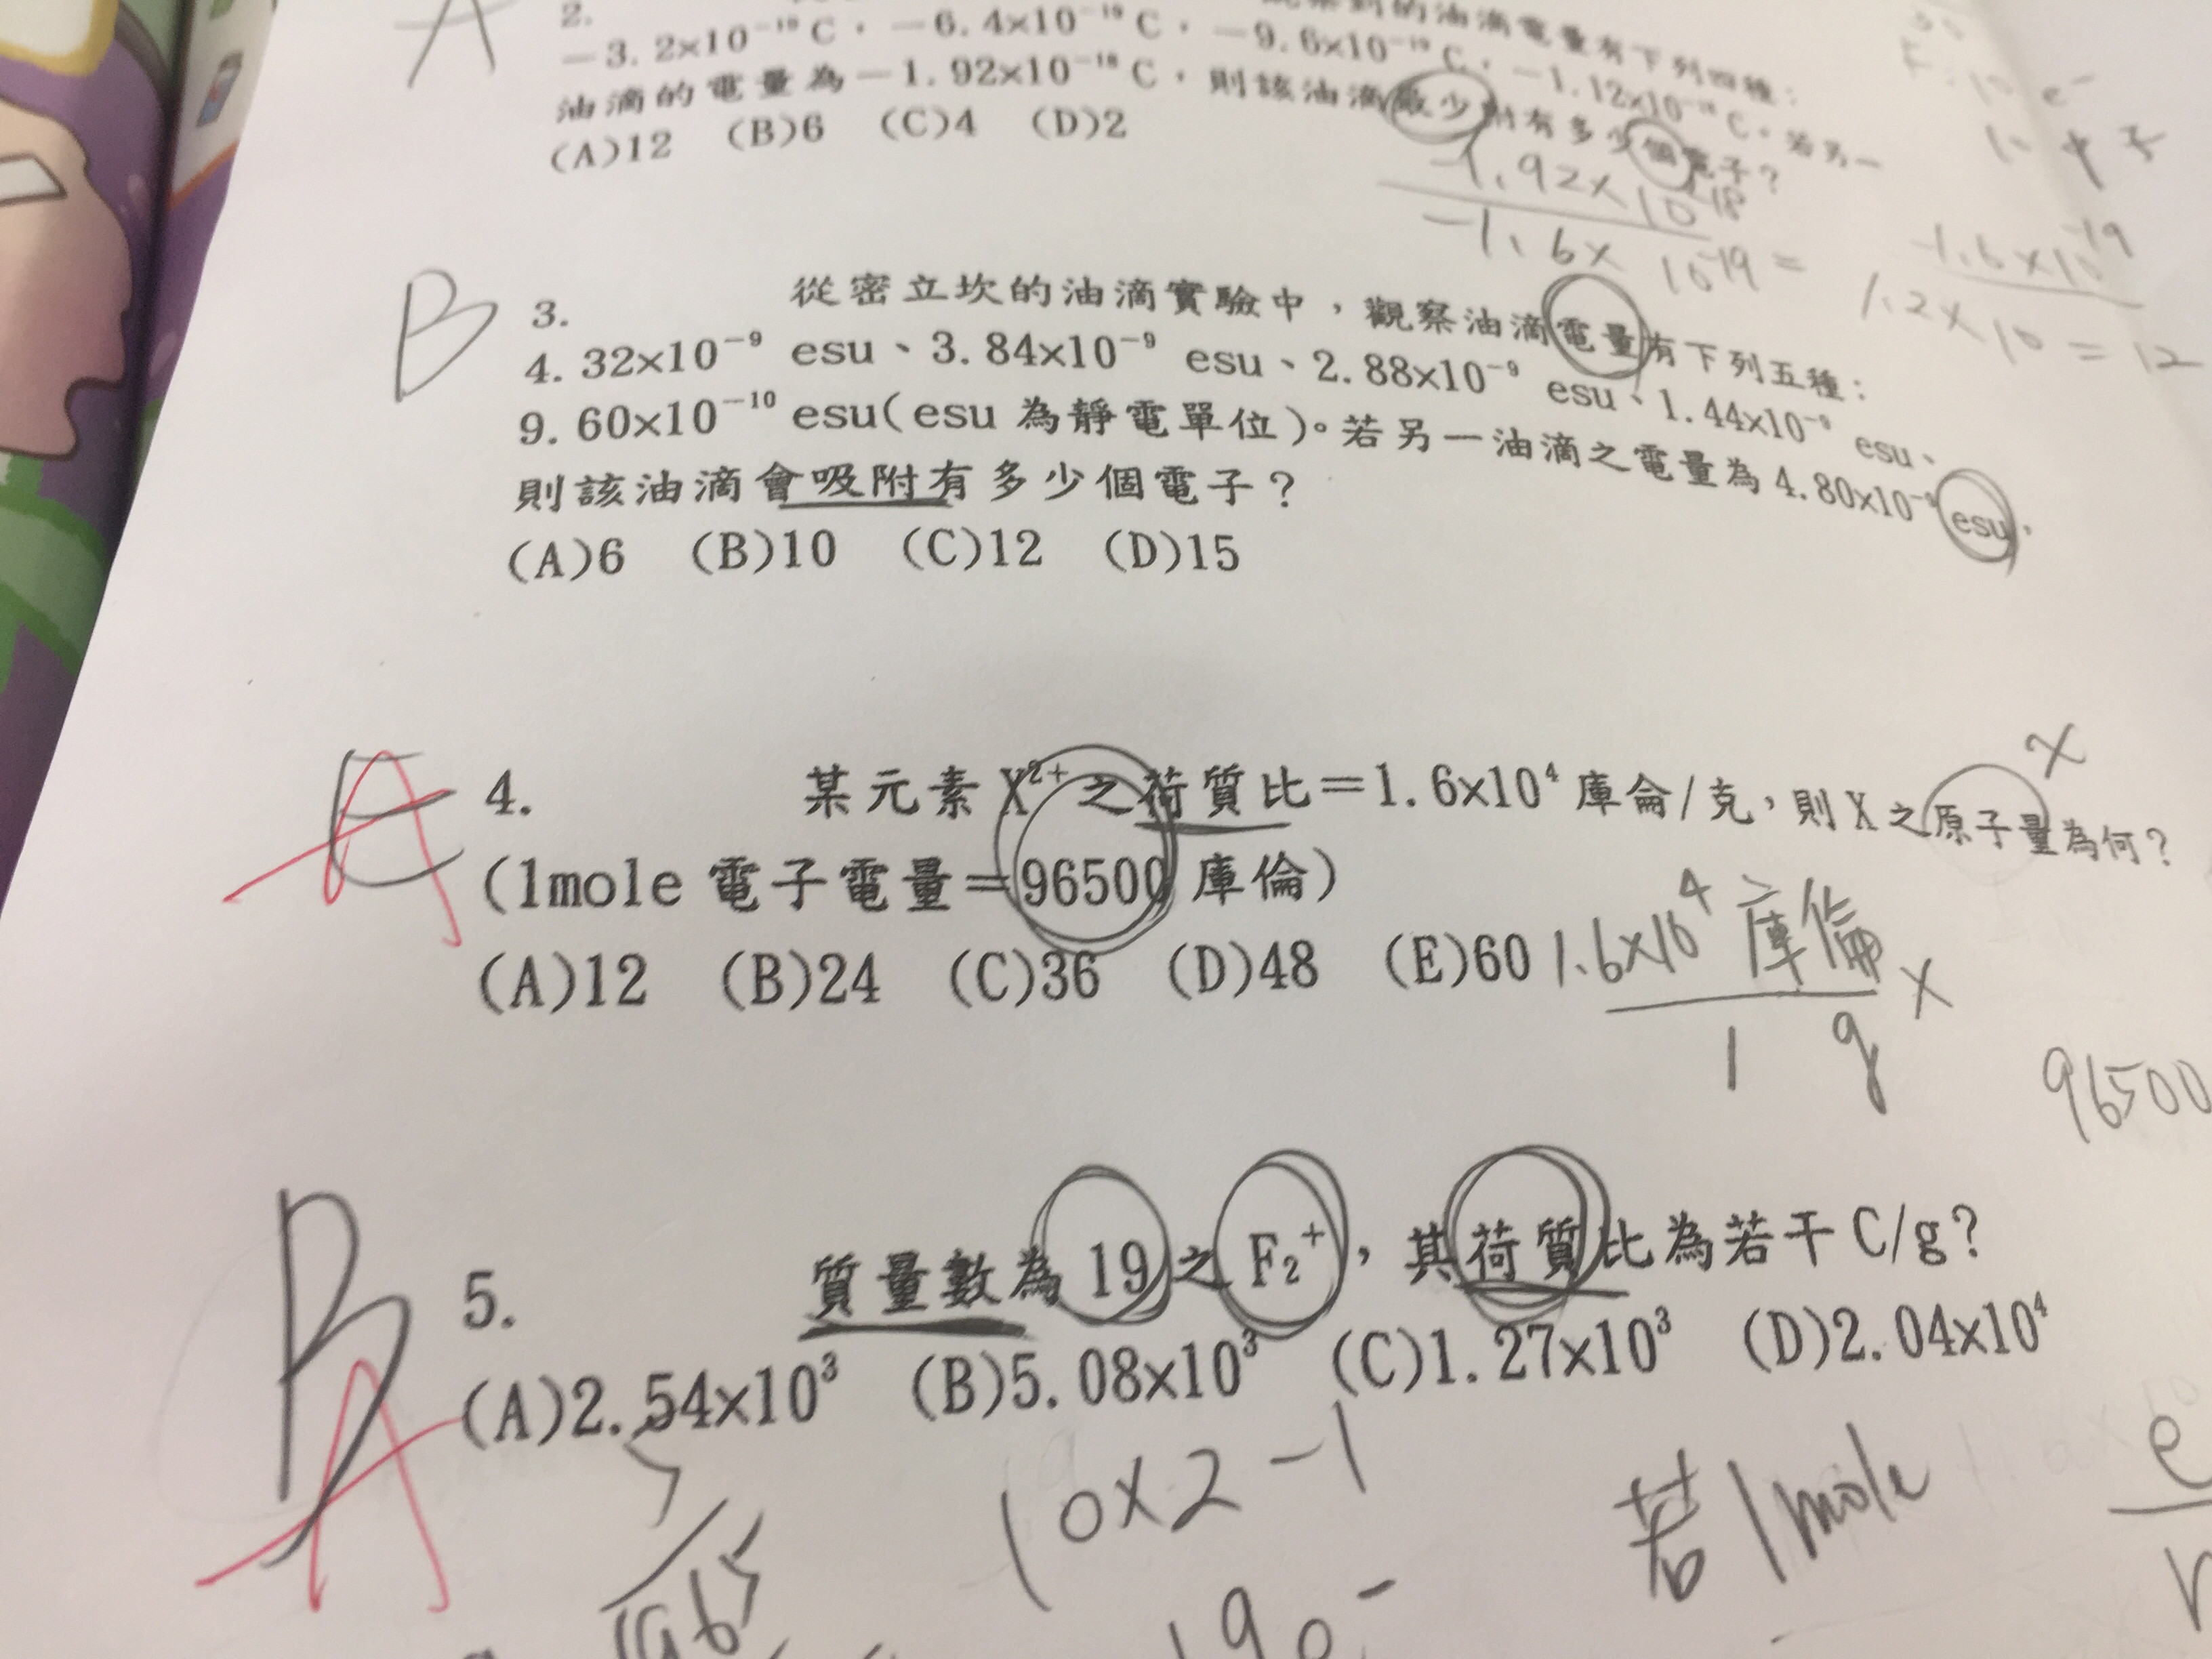 A
2. 到的油滴電量有下列四種：
－3.2×10⁻¹⁹C，－6.4×10⁻¹⁹C，－9.6×10⁻¹⁹C，－1.12×10⁻¹⁸C。若另一
油滴的電量為－1.92×10⁻¹⁸C，則該油滴最少附有多少個電子？
(A)12 (B)6 (C)4 (D)2
-1.92×10⁻¹⁸
-1.6×10⁻¹⁹ =
-1.6×10⁻¹⁹
1.2×10 = 12
B
3. 從密立坎的油滴實驗中，觀察油滴電量有下列五種：
4.32×10⁻⁹ esu、3.84×10⁻⁹ esu、2.88×10⁻⁹ esu、1.44×10⁻⁹ esu、
9.60×10⁻¹⁰ esu(esu 為靜電單位)。若另一油滴之電量為 4.80×10⁻⁹ esu，
則該油滴會吸附有多少個電子？
(A)6 (B)10 (C)12 (D)15
E A
4. 某元素 X²⁺ 之荷質比＝1.6×10⁴ 庫侖/克，則 X 之原子量為何？
X
(1mole 電子電量＝96500 庫倫)
(A)12 (B)24 (C)36 (D)48 (E)60
1.6×10⁴ 庫倫
1 g
X
96500
B A
5. 質量數為 19 之 F₂⁺，其荷質比為若干 C/g？
(A)2.54×10³ (B)5.08×10³ (C)1.27×10³ (D)2.04×10⁴
10×2-1
若1mole
e